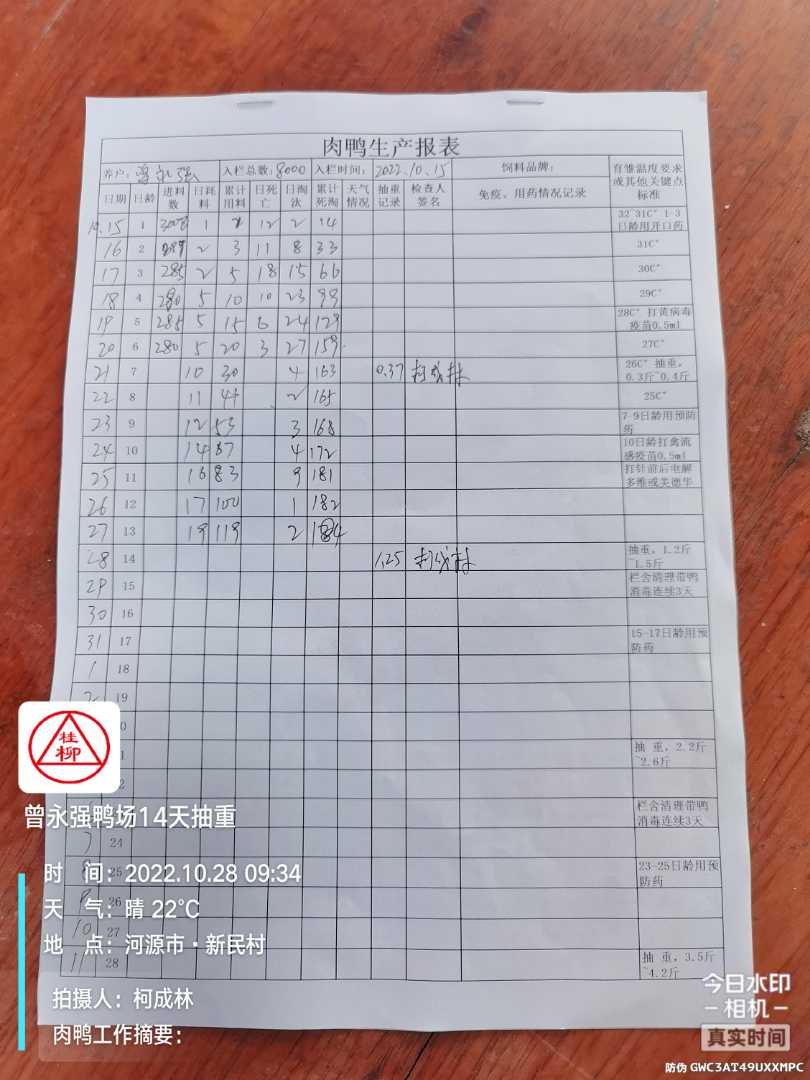 肉鸭生产报表
养户: 曾永强 入栏总数: 8000 入栏时间: 2022.10.15 饲料品牌: 育雏温度要求或其他关键点标准
日期 日龄 进料数 日耗料 累计用料 日死亡 日淘汰 累计死淘 天气情况 抽重记录 检查人签名 免疫、用药情况记录
10.15 1 1 12 2 14 32~31C° 1-3日龄用开口药
16 2 2 3 11 8 33 31C°
17 3 285 2 5 18 15 66 30C°
18 4 280 5 10 10 23 99 29C°
19 5 285 5 15 6 24 129 28C° 打黄病毒疫苗0.5ml
20 6 280 5 20 3 27 159 27C°
21 7 10 30 4 163 0.37 26C° 抽重,0.3斤~0.4斤
22 8 11 2 165 25C°
23 9 12 53 3 168 7-9日龄用预防药
24 10 14 67 4 172 10日龄打禽流感疫苗0.5ml
25 11 16 83 9 181 打针前后电解多维或美德华
26 12 17 100 1 182
27 13 19 119 2 184
28 14 1.25 抽重,1.2斤~1.5斤
29 15 栏舍清理带鸭消毒连续3天
30 16
31 17 15-17日龄用预防药
1 18
2 19
抽 重, 2.2斤~2.6斤
栏舍清理带鸭消毒连续3天
7 24
8 25 23-25日龄用预防药
9 26
10 27
11 28 抽 重, 3.5斤~4.2斤
桂柳
曾永强鸭场14天抽重
时 间: 2022.10.28 09:34
天 气: 晴 22℃
地 点: 河源市·新民村
拍摄人: 柯成林
肉鸭工作摘要:
今日水印
相机
真实时间
防伪 GWC3AT49UXXMPC